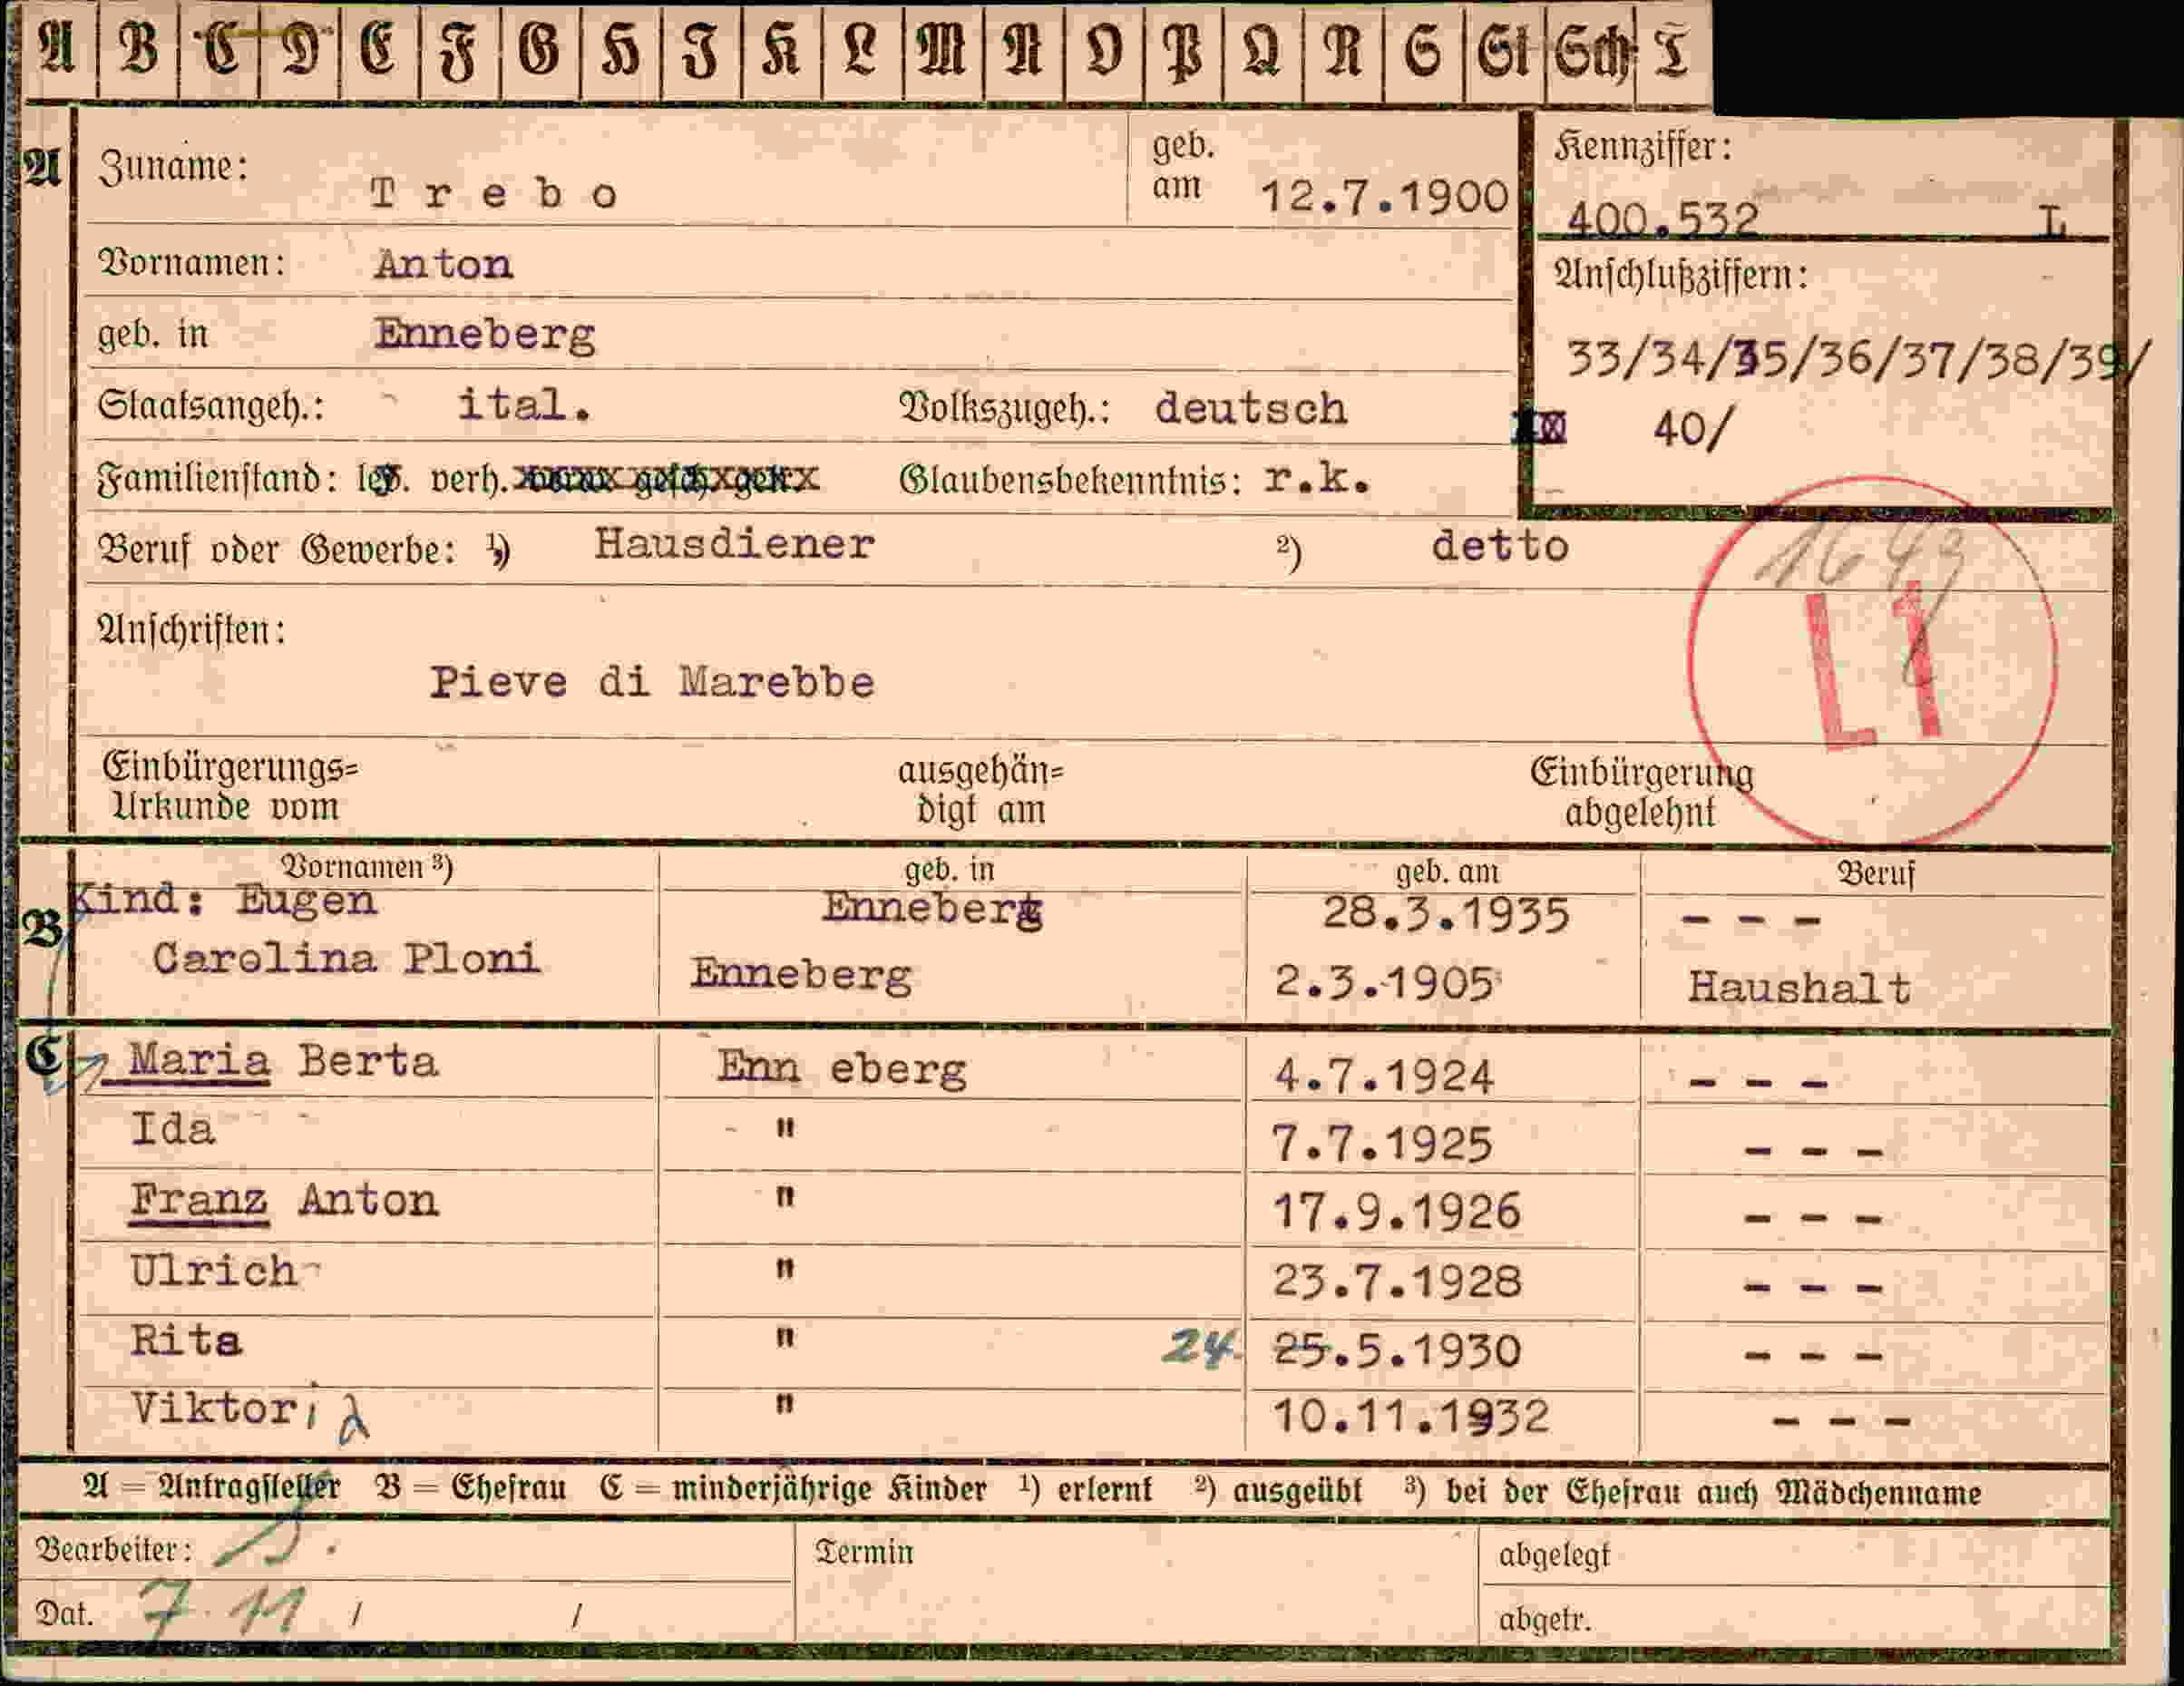 A B C D E F G H I K L M N O P Q R S St Sch T
A Zuname: Trebo geb. am 12.7.1900 Kennziffer: 400.532 L
Vornamen: Anton
Anschlußziffern:
geb. in Enneberg
33/34/35/36/37/38/39/
Staatsangeh.: ital. Volkszugeh.: deutsch
40/
Familienstand: verh. Glaubensbekenntnis: r.k.
Beruf oder Gewerbe: 1) Hausdiener 2) detto
1649
L1
Anschriften:
Pieve di Marebbe
Einbürgerungs=
Urkunde vom
ausgehän=
digt am
Einbürgerung
abgelehnt
Vornamen 3) geb. in geb. am Beruf
Kind: Eugen Enneberg 28.3.1935 - - -
B Carolina Ploni Enneberg 2.3.1905 Haushalt
C Maria Berta Enn eberg 4.7.1924 - - -
Ida " 7.7.1925 - - -
Franz Anton " 17.9.1926 - - -
Ulrich " 23.7.1928 - - -
Rita " 24. 25.5.1930 - - -
Viktor " 10.11.1932 - - -
A = Antragsteller B = Ehefrau C = minderjährige Kinder 1) erlernt 2) ausgeübt 3) bei der Ehefrau auch Mädchenname
Bearbeiter: Termin abgelegt
Dat. 7. 11 / / abgetr.